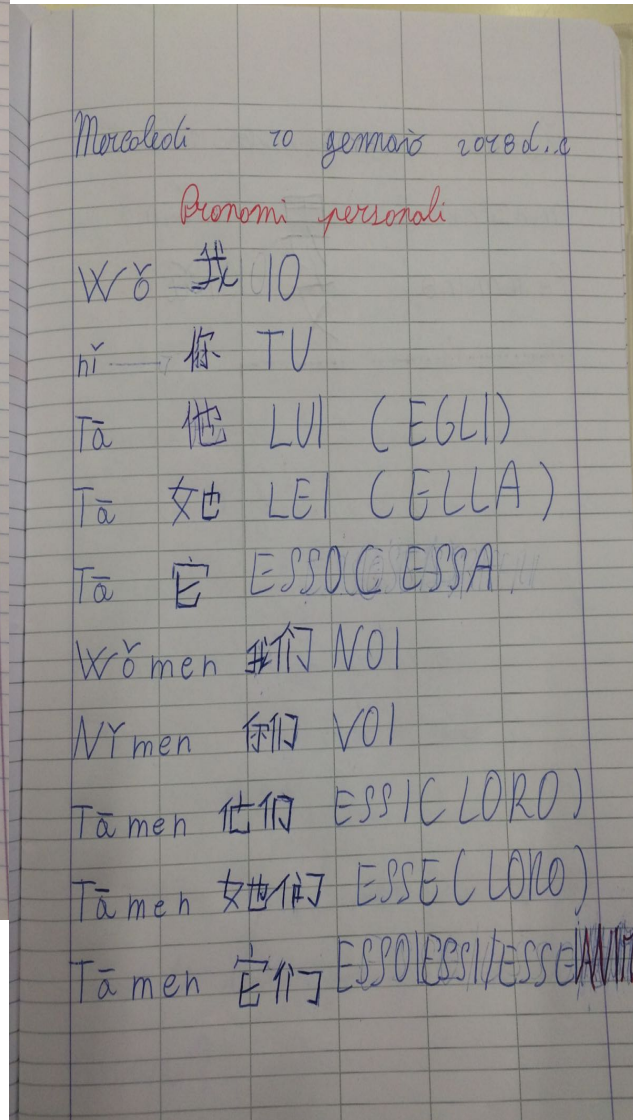 Mercoledì 10 gennaio 2018 d.c
Pronomi personali
Wǒ 我 IO
nǐ 你 TU
Tā 他 LUI (EGLI)
Tā 她 LEI (ELLA)
Tā 它 ESSO ( ESSA
Wǒmen 我们 NOI
Nǐmen 你们 VOI
Tāmen 他们 ESSI (LORO)
Tāmen 她们 ESSE (LORO)
Tāmen 它们 ESSO/ESSI/ESSE